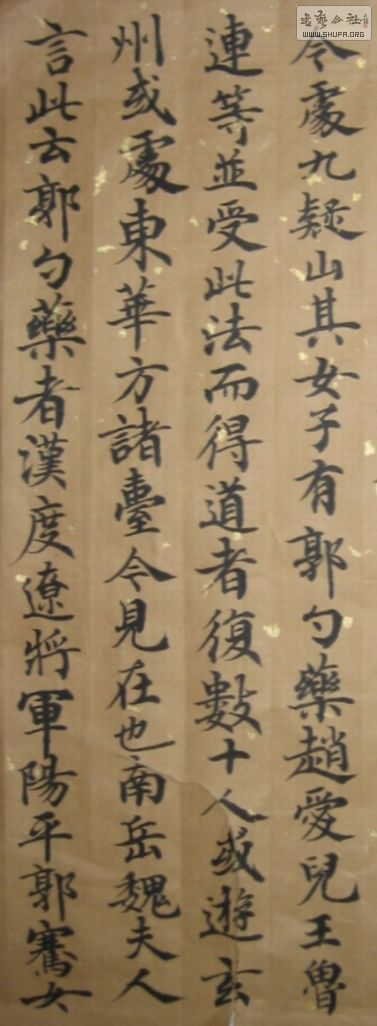 今處九疑山其女子有郭勺藥趙愛兒王魯
連等並受此法而得道者復數十人或遊玄
州或處東華方諸臺令見在也南岳魏夫人
言此云郭勺藥者漢度遼將軍陽平郭騫女
WWW.SHUFA.ORG